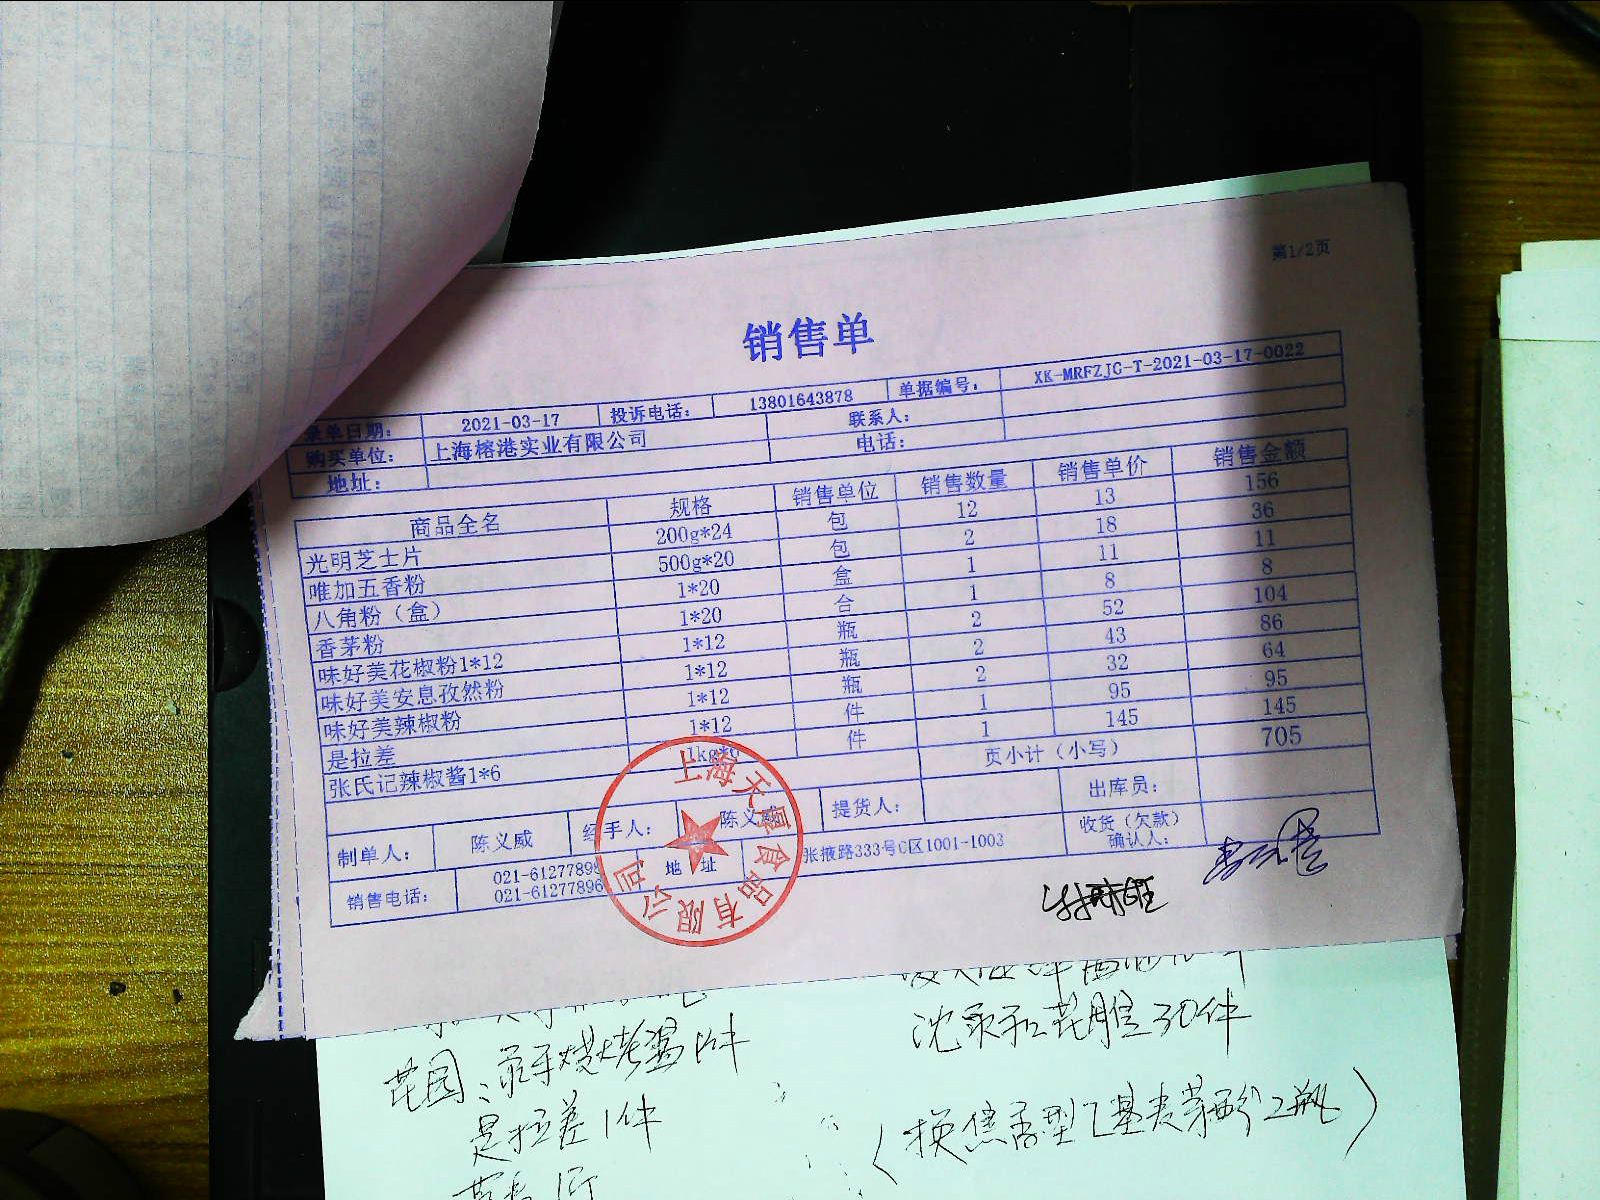 第1/2页
销售单
录单日期： 2021-03-17 投诉电话： 13801643878 单据编号： XK-MRFZJG-T-2021-03-17-0022
购买单位： 上海榕港实业有限公司 联系人：
地址： 电话：
商品全名 规格 销售单位 销售数量 销售单价 销售金额
光明芝士片 200g*24 包 12 13 156
唯加五香粉 500g*20 包 2 18 36
八角粉（盒） 1*20 盒 1 11 11
香茅粉 1*20 合 1 8 8
味好美花椒粉1*12 1*12 瓶 2 52 104
味好美安息孜然粉 1*12 瓶 2 43 86
味好美辣椒粉 1*12 瓶 2 32 64
是拉差 1*12 件 1 95 95
张氏记辣椒酱1*6 1kg* 件 1 145 145
页小计（小写） 705
制单人： 陈义威 经手人： 陈义威 提货人： 出库员：
销售电话： 021-61277898 021-61277896 地 址 张掖路333号C区1001-1003 收货（欠款）确认人：
上海天厚食品有限公司
花园：
是拉差1件
30件